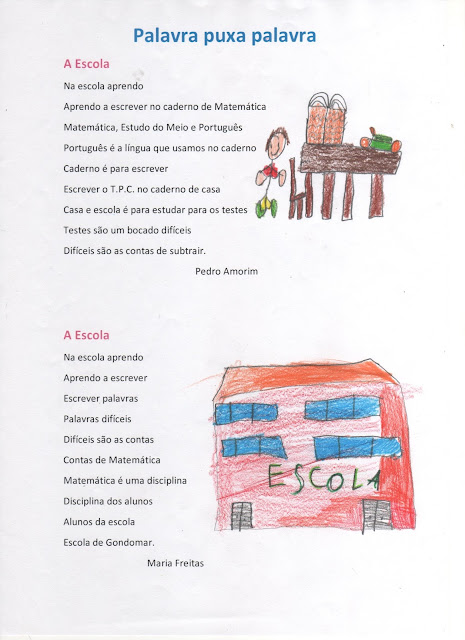 Palavra puxa palavra
A Escola
Na escola aprendo
Aprendo a escrever no caderno de Matemática
Matemática, Estudo do Meio e Português
Português é a língua que usamos no caderno
Caderno é para escrever
Escrever o T.P.C. no caderno de casa
Casa e escola é para estudar para os testes
Testes são um bocado difíceis
Difíceis são as contas de subtrair.
Pedro Amorim
A Escola
Na escola aprendo
Aprendo a escrever
Escrever palavras
Palavras difíceis
Difíceis são as contas
Contas de Matemática
Matemática é uma disciplina
Disciplina dos alunos
Alunos da escola
Escola de Gondomar.
Maria Freitas
ESCOLA